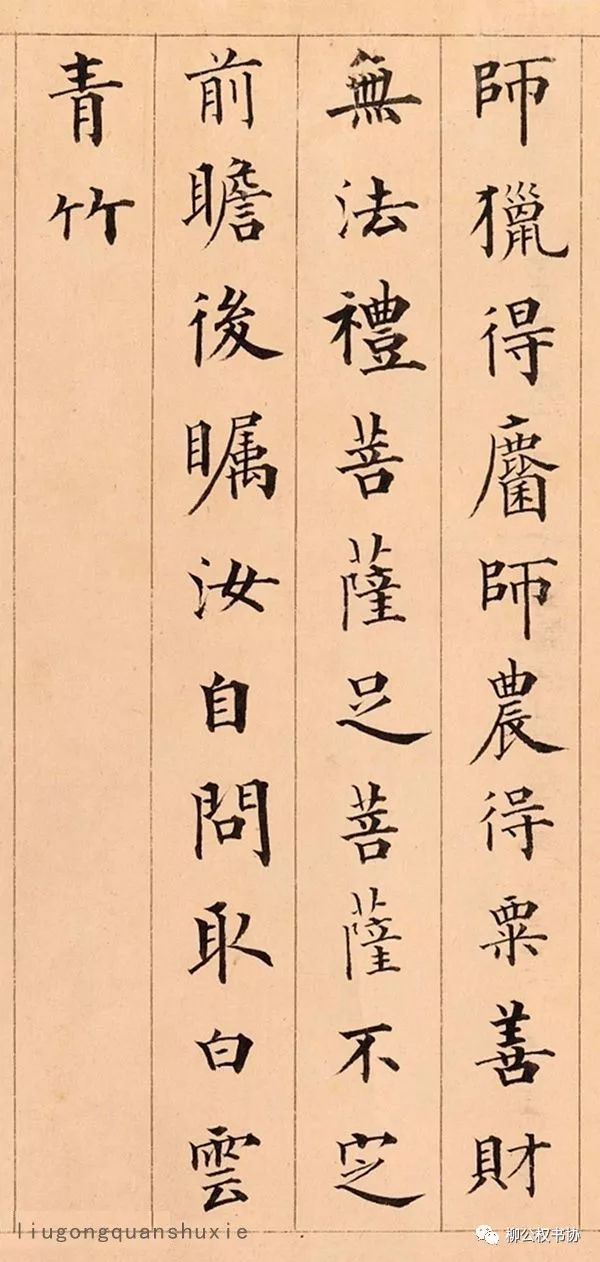 師獵得麕師農得粟善財
無法禮菩薩足菩薩不定
前瞻後瞩汝自問取白雲
青竹
liugongquanshuxie
柳公权书协